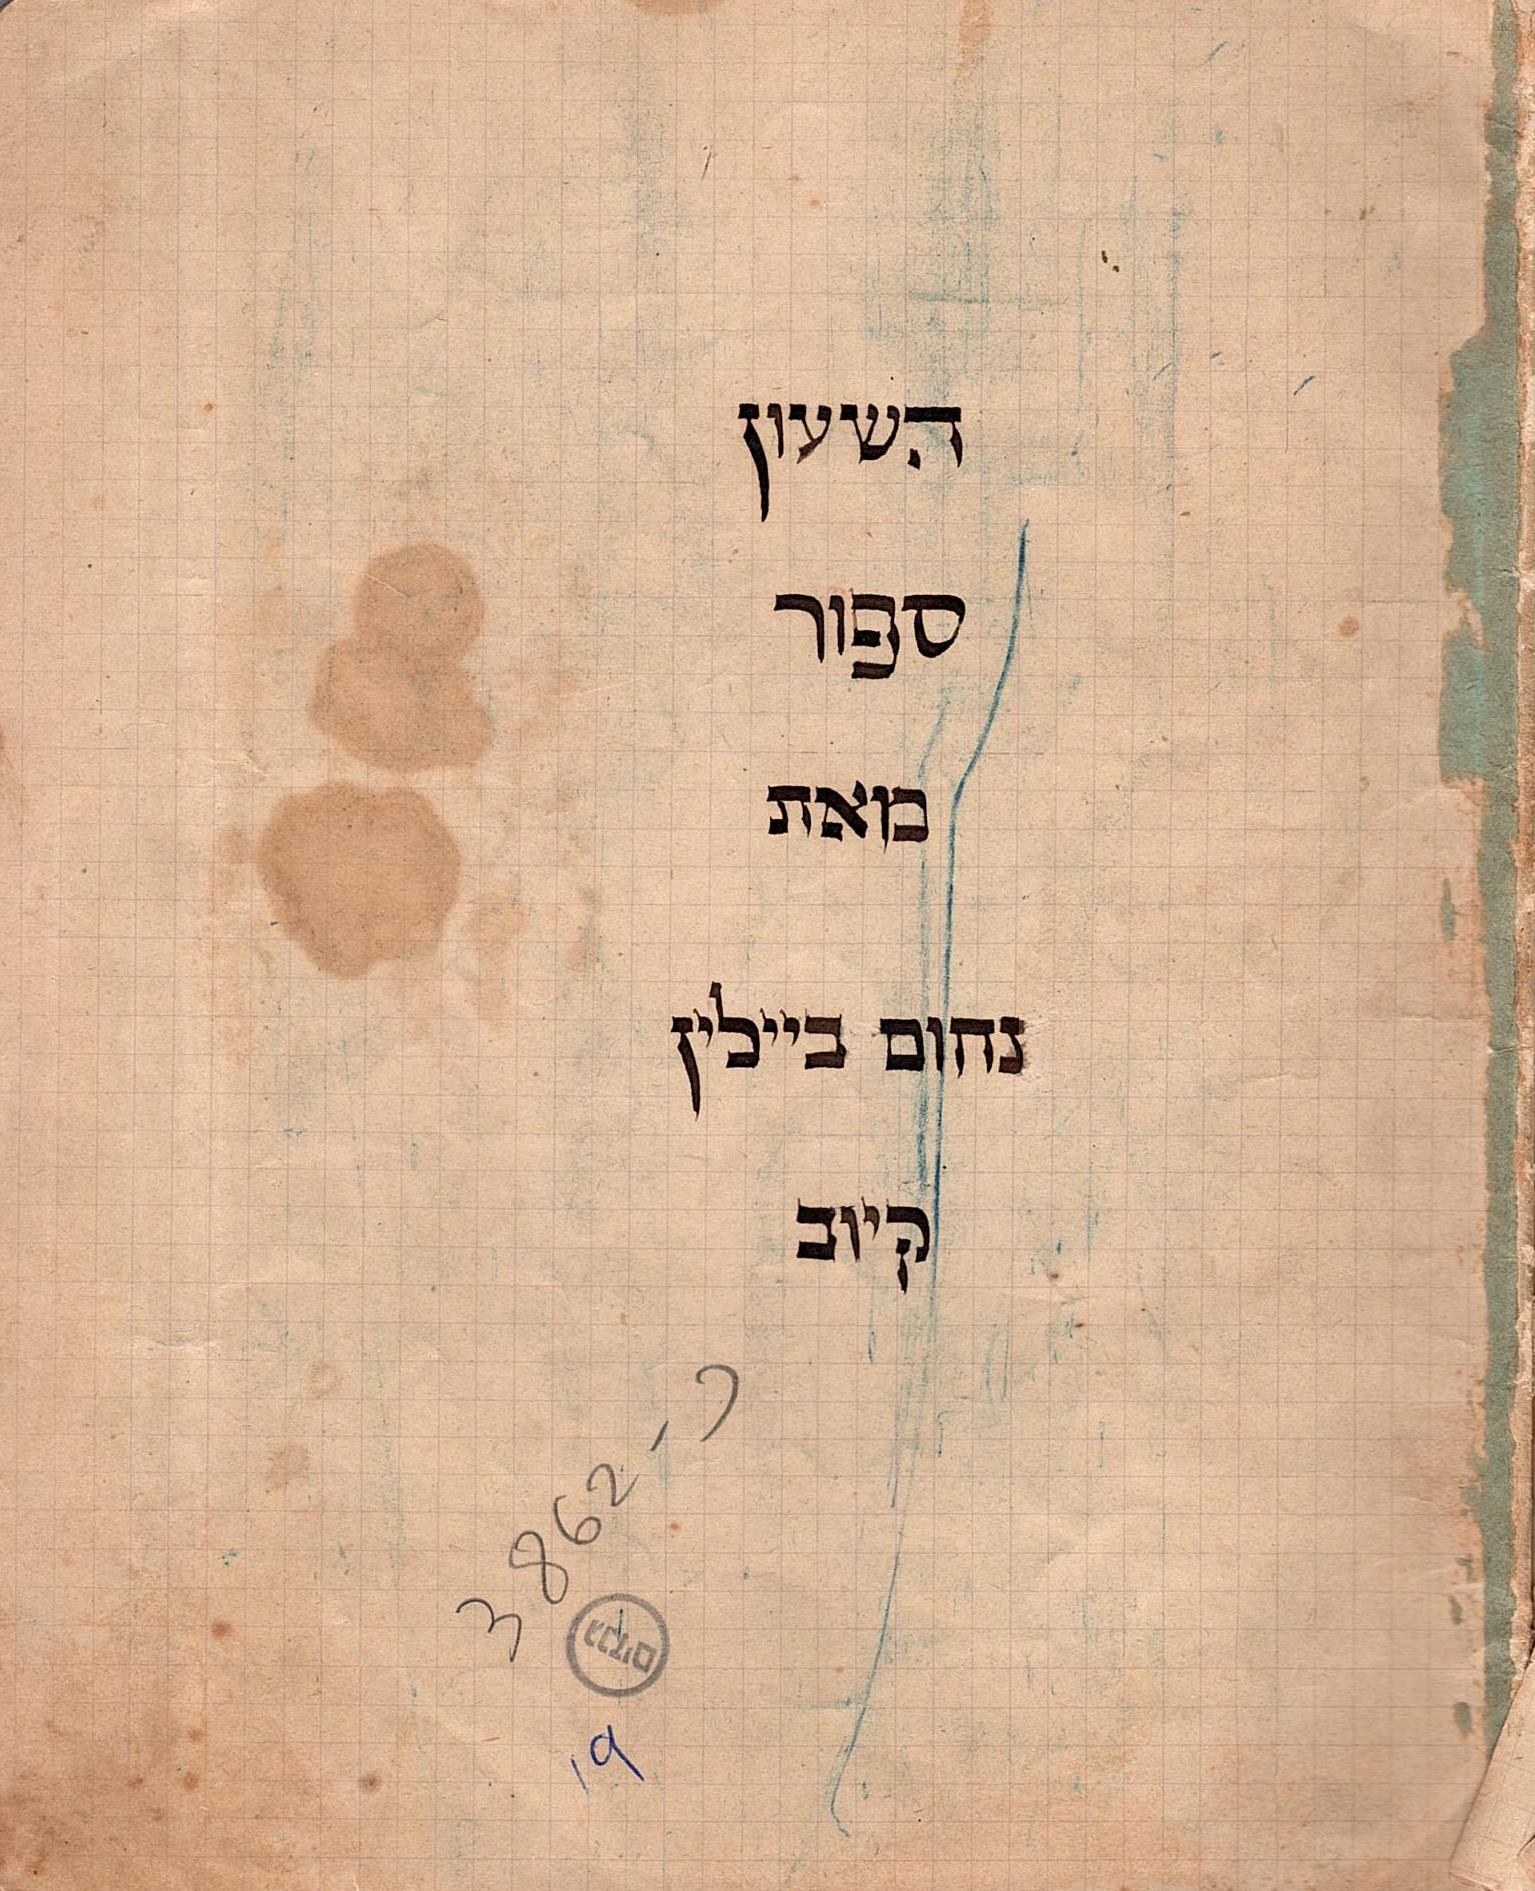 השעון
ספור
מאת
נחום ביילין
קיוב
3862-כ
גנזים
19